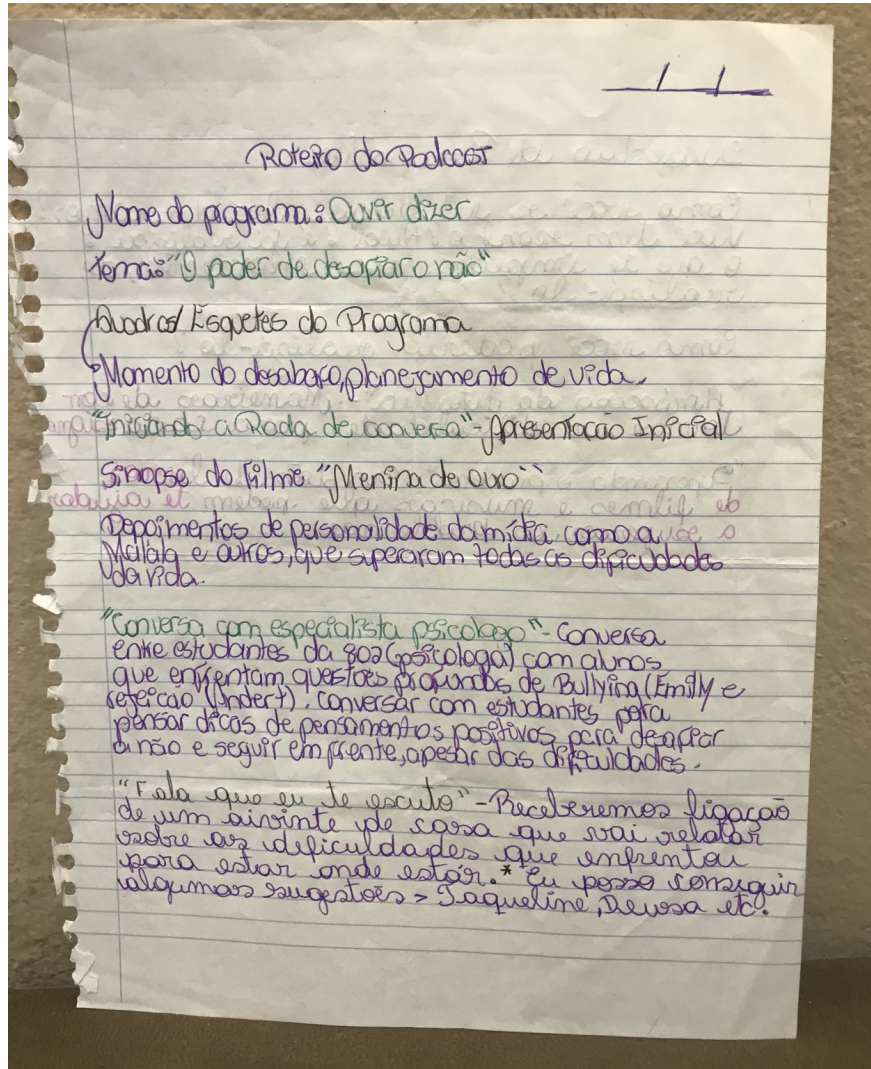 Roteiro do Podcast
Nome do programa: Ouvir dizer
Tema: "O poder de desafiar o não"
Quadros/Esquetes do Programa
Momento do desabafo, planejamento de vida.
"Iniciando a Roda de conversa" - Apresentação Inicial
Sinopse do filme "Menina de ouro"
Depoimentos de personalidade da mídia como a
Malala e outros, que superaram todas as dificuldades
da vida.
"Conversa com especialista psicologo" - Conversa
entre estudantes da 802 (psicologa) com alunos
que enfrentam questões profundas de Bullying (Emilly e
rejeição (). conversar com estudantes para
pensar dicas de pensamentos positivos para desafiar
o não e seguir em frente, apesar das dificuldades.
"Fala que eu te escuto" - Receberemos ligação
de um ouvinte de casa que vai relatar
sobre as dificuldades que enfrentou
para estar onde estár. * Eu posso conseguir
algumas sugestões > Jaqueline, etc.